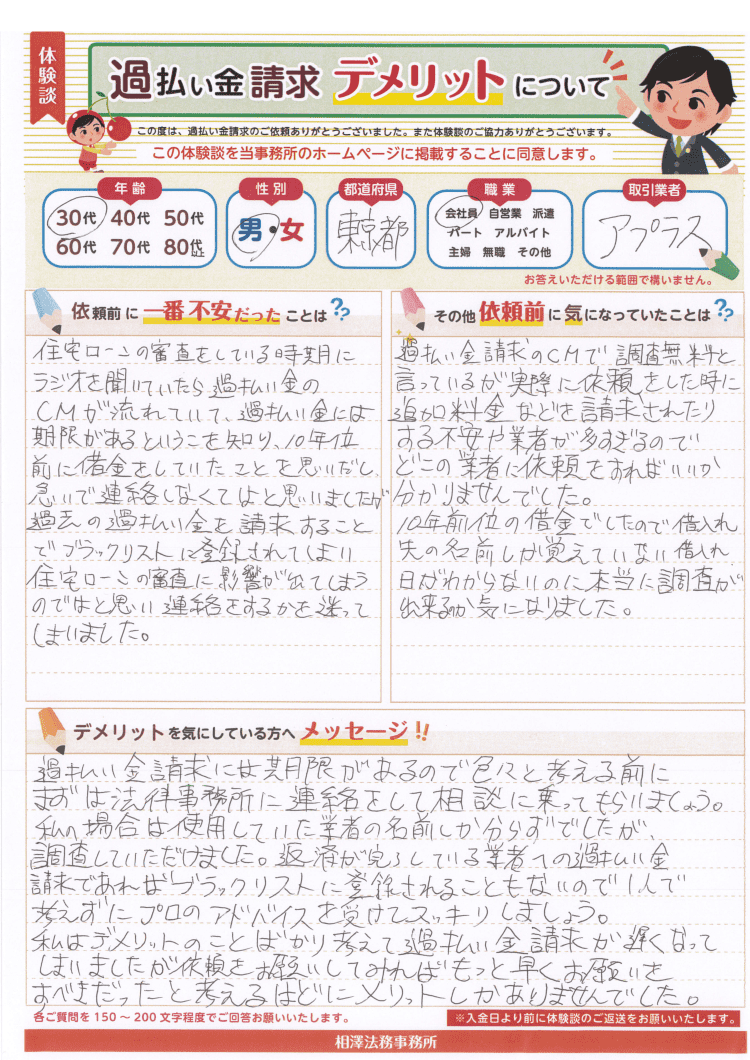 体験談
過払い金請求 デメリットについて
この度は、過払い金請求のご依頼ありがとうございました。また体験談のご協力ありがとうございます。
この体験談を当事務所のホームページに掲載することに同意します。
年齢
30代 40代 50代
60代 70代 80代以上
性別
男・女
都道府県
東京都
職業
会社員 自営業 派遣
パート アルバイト
主婦 無職 その他
取引業者
アプラス
お答えいただける範囲で構いません。
依頼前に一番不安だったことは??
住宅ローンの審査をしている時期に
ラジオを聞いていたら過払い金の
CMが流れていて、過払い金には
期限があるということを知り、10年位
前に借金をしていたことを思いだし、
急いで連絡しなくてはと思いましたが
過去の過払い金を請求すること
でブラックリストに登録されてしまい
住宅ローンの審査に影響が出てしまう
のではと思い連絡をするかを迷って
しまいました。
その他依頼前に気になっていたことは??
過払い金請求のCMで調査無料と
言っているが実際に依頼をした時に
追加料金などを請求されたり
する不安や業者が多すぎるので
どこの業者に依頼をすればいいか
分かりませんでした。
10年前位の借金でしたので借入れ
先の名前しか覚えていない借入れ
日がわからないのに本当に調査が
出来るのか気になりました。
デメリットを気にしている方へメッセージ!!
過払い金請求には期限があるので色々と考える前に
まずは法律事務所に連絡をして相談に乗ってもらいましょう。
私の場合は使用していた業者の名前しか分らずでしたが、
調査していただけました。返済が完了している業者への過払い金
請求であればブラックリストに登録されることもないので1人で
考えずにプロのアドバイスを受けてスッキリしましょう。
私はデメリットのことばかり考えて過払い金請求が遅くなって
しまいましたが依頼をお願いしてみればもっと早くお願いを
すべきだったと考えるほどにメリットしかありませんでした。
各ご質問を150～200文字程度でご回答お願いいたします。
※入金日より前に体験談のご返送をお願いいたします。
相澤法務事務所